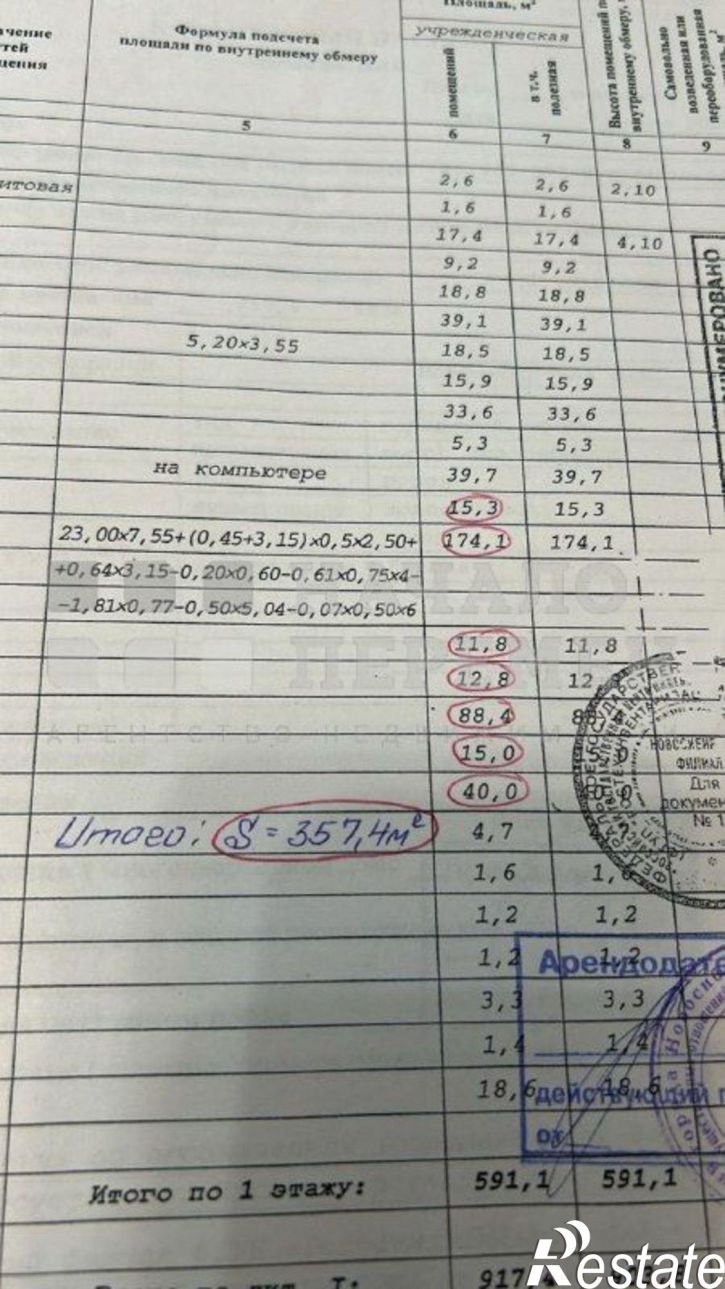 Площадь, м²
Формула подсчета
площади по внутреннему обмеру
учрежденческая
помещений
в т.ч.
полезная
Высота помещений по
внутреннему обмеру,
Самовольно
возведенная или
переоборудованная
5 6 7 8 9
2,6 2,6 2,10
1,6 1,6
17,4 17,4 4,10
9,2 9,2
18,8 18,8
39,1 39,1
5,20×3,55 18,5 18,5
15,9 15,9
33,6 33,6
5,3 5,3
на компьютере 39,7 39,7
15,3 15,3
23,00×7,55+(0,45+3,15)×0,5×2,50+ 174,1 174,1
+0,64×3,15-0,20×0,60-0,61×0,75×4-
-1,81×0,77-0,50×5,04-0,07×0,50×6
11,8 11,8
12,8 12
88,4
АГЕНТСТВО НЕДВИЖИМ
15,0
40,0
Итого: S = 357,4м² 4,7
1,6
1,2 1,2
1,2 1,2
3,3 3,3
1,4 1,4
18,6 18,6
Итого по 1 этажу: 591,1 591,1
917,4
НАЧАЛО
ФИЛИАЛ
Для
№ 1
Арендодате
действующий
от
Restate